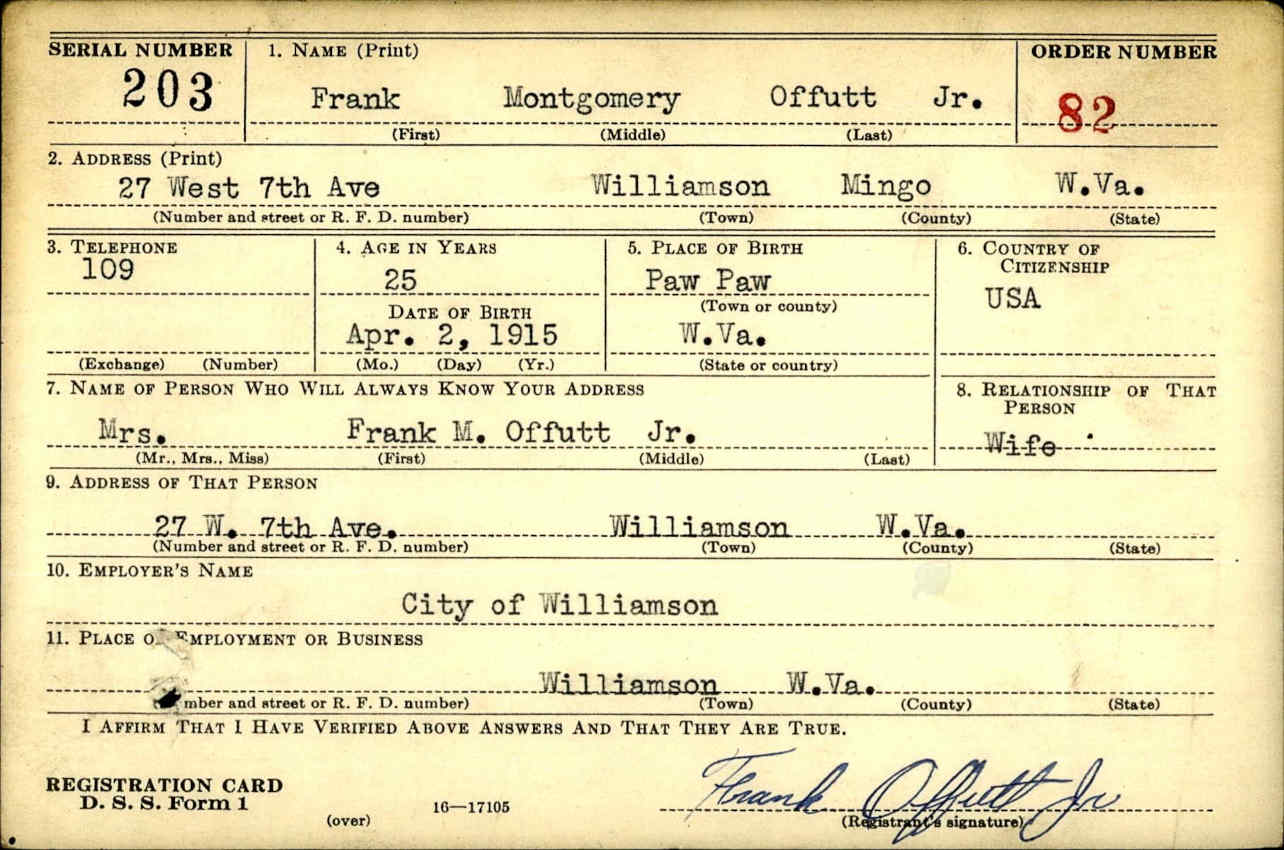 SERIAL NUMBER 1. NAME (Print) ORDER NUMBER
203 Frank Montgomery Offutt Jr. 82
(First) (Middle) (Last)
2. ADDRESS (Print)
27 West 7th Ave Williamson Mingo W.Va.
(Number and street or R. F. D. number) (Town) (County) (State)
3. TELEPHONE 4. AGE IN YEARS 5. PLACE OF BIRTH 6. COUNTRY OF
CITIZENSHIP
109 25 Paw Paw USA
(Town or county)
DATE OF BIRTH
Apr. 2, 1915 W.Va.
(Exchange) (Number) (Mo.) (Day) (Yr.) (State or country)
7. NAME OF PERSON WHO WILL ALWAYS KNOW YOUR ADDRESS 8. RELATIONSHIP OF THAT
PERSON
Mrs. Frank M. Offutt Jr. Wife
(Mr., Mrs., Miss) (First) (Middle) (Last)
9. ADDRESS OF THAT PERSON
27 W. 7th Ave. Williamson W.Va.
(Number and street or R. F. D. number) (Town) (County) (State)
10. EMPLOYER'S NAME
City of Williamson
11. PLACE O EMPLOYMENT OR BUSINESS
Williamson W.Va.
mber and street or R. F. D. number) (Town) (County) (State)
I AFFIRM THAT I HAVE VERIFIED ABOVE ANSWERS AND THAT THEY ARE TRUE.
REGISTRATION CARD
D. S. S. Form 1 16—17105 Frank Offutt Jr
(over) (Registrant's signature)